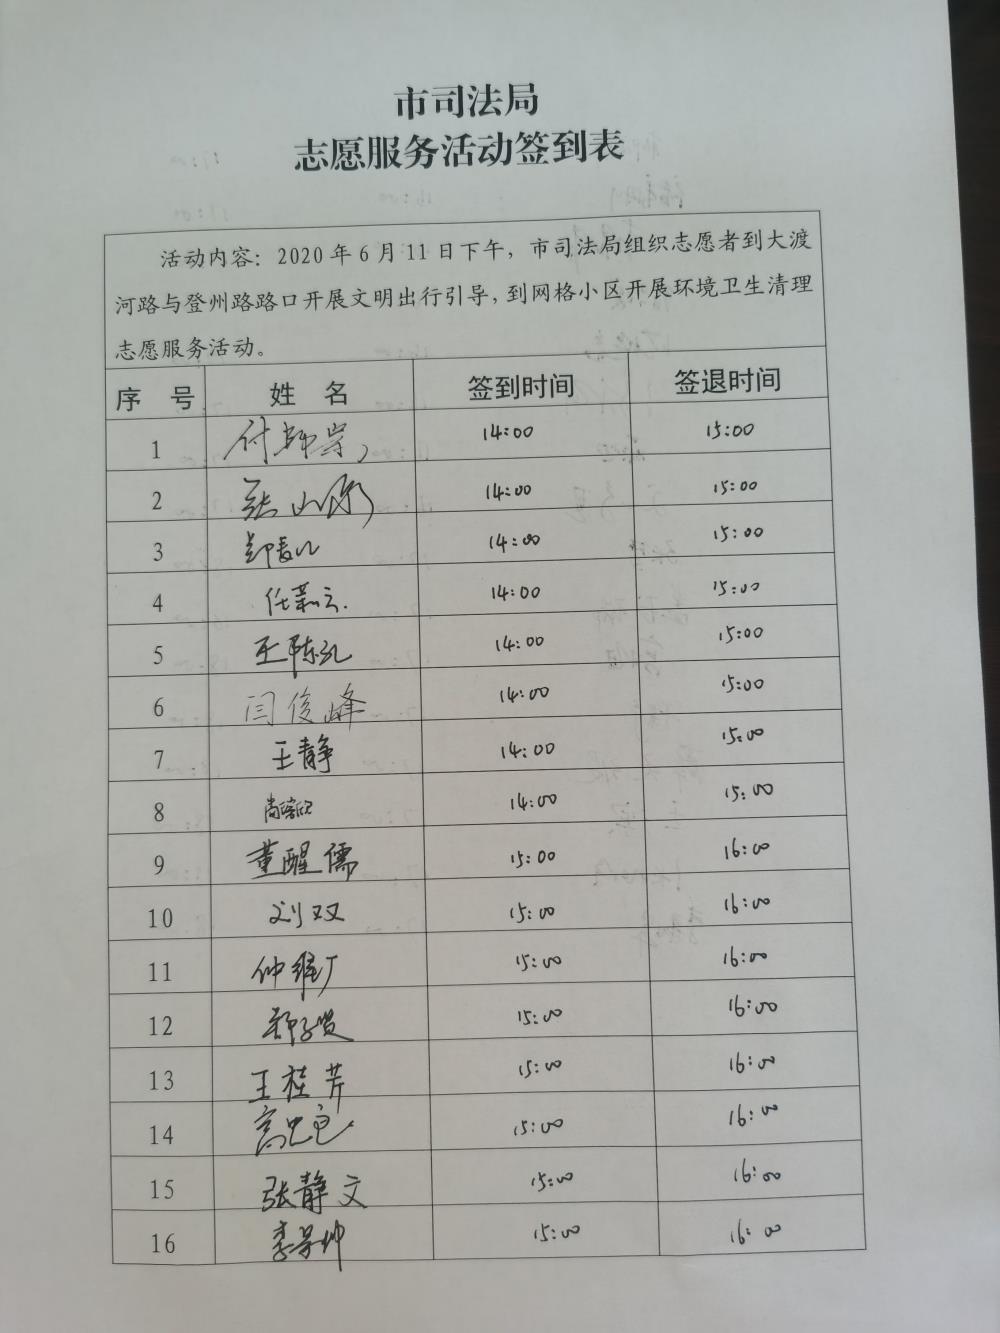 市司法局
志愿服务活动签到表
活动内容：2020年6月11日下午，市司法局组织志愿者到大渡
河路与登州路路口开展文明出行引导，到网格小区开展环境卫生清理
志愿服务活动。
序 号 姓 名 签到时间 签退时间
1 14:00 15:00
2 14:00 15:00
3 14:00 15:00
4 14:00 15:00
5 14:00 15:00
6 闫俊峰 14:00 15:00
7 王静 14:00 15:00
8 14:00 15:00
9 董醒儒 15:00 16:00
10 刘双 15:00 16:00
11 仲维广 15:00 16:00
12 15:00 16:00
13 王桂芹 15:00 16:00
14 15:00 16:00
15 张静文 15:00 16:00
16 15:00 16:00